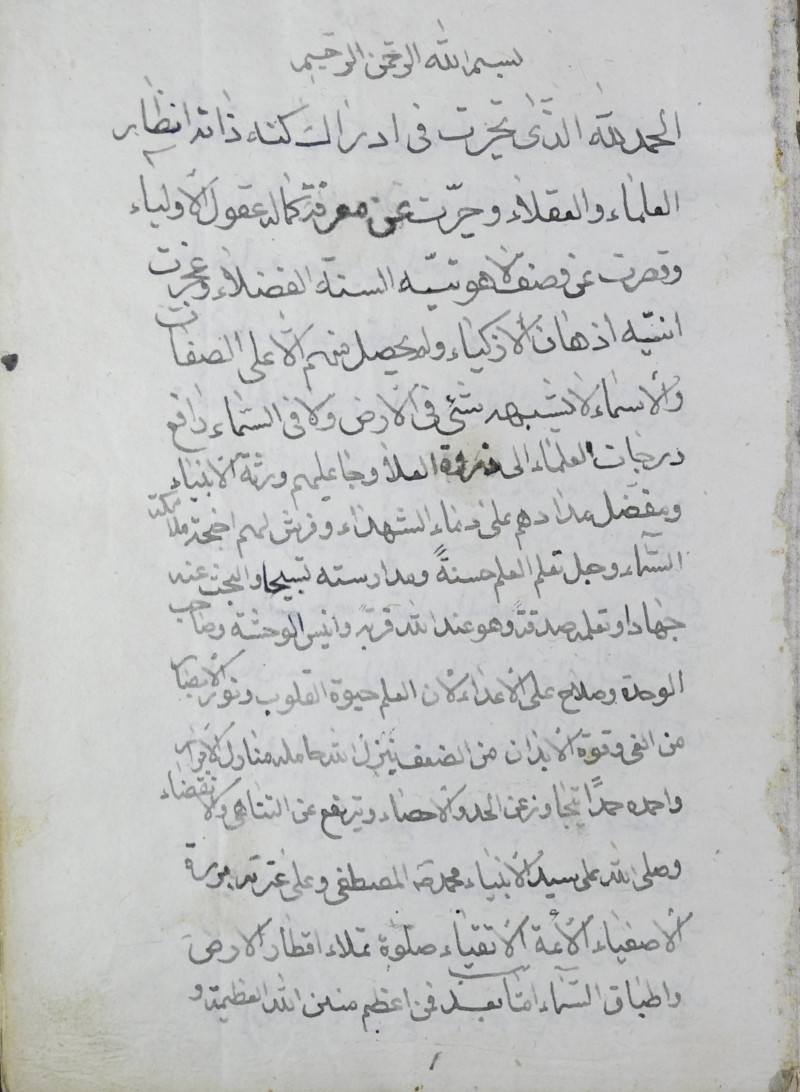 بسم الله الرحمن الرحيم
الحمد لله الذى تحيرت فى ادراك كنه ذاته انظار
العلماء والعقلاء وحيرت عن معرفة كماله عقول الأولياء
وقصرت عن وصف لاهوتيته السنة الفضلاء وعجزت عن
انيته اذهان الأذكياء ولم يحصل منهم الّا على الصفات
والأسماء لا يشبهه شئ فى الأرض ولا فى السماء رافع
درجات العلماء الى ذروة العلا وجاعلهم ورثة الانبياء
ومفضل مدادهم على دماء الشهداء وفرش لهم اجنحة ملائكة
السّماء وجعل تعلم العلم حسنةً ومدارسته تسبيحا والبحث عنه
جهادا وتعلمه صدقةً وهو عند الله قربة وانيس الوحشة وصاحب
الوحدة وسلاح على الأعداء لأن العلم حيوة القلوب ونور الأبصار
من العمى وقوة الأبدان من الضعف ينزل الله حامله منازل الأبرار
واحمده حمدًا يتجاوز عن الحد والأحصاء ويرتفع عن التناهى والأنقضاء
وصلى الله على سيد الأنبياء محمد المصطفى وعلى عترته بررة
الأصفياء الأئمة الأتقياء صلوة تملاء اقطار الارض
واطباق السّماء امّا بعد فمن اعظم منن الله العظيمة و
١